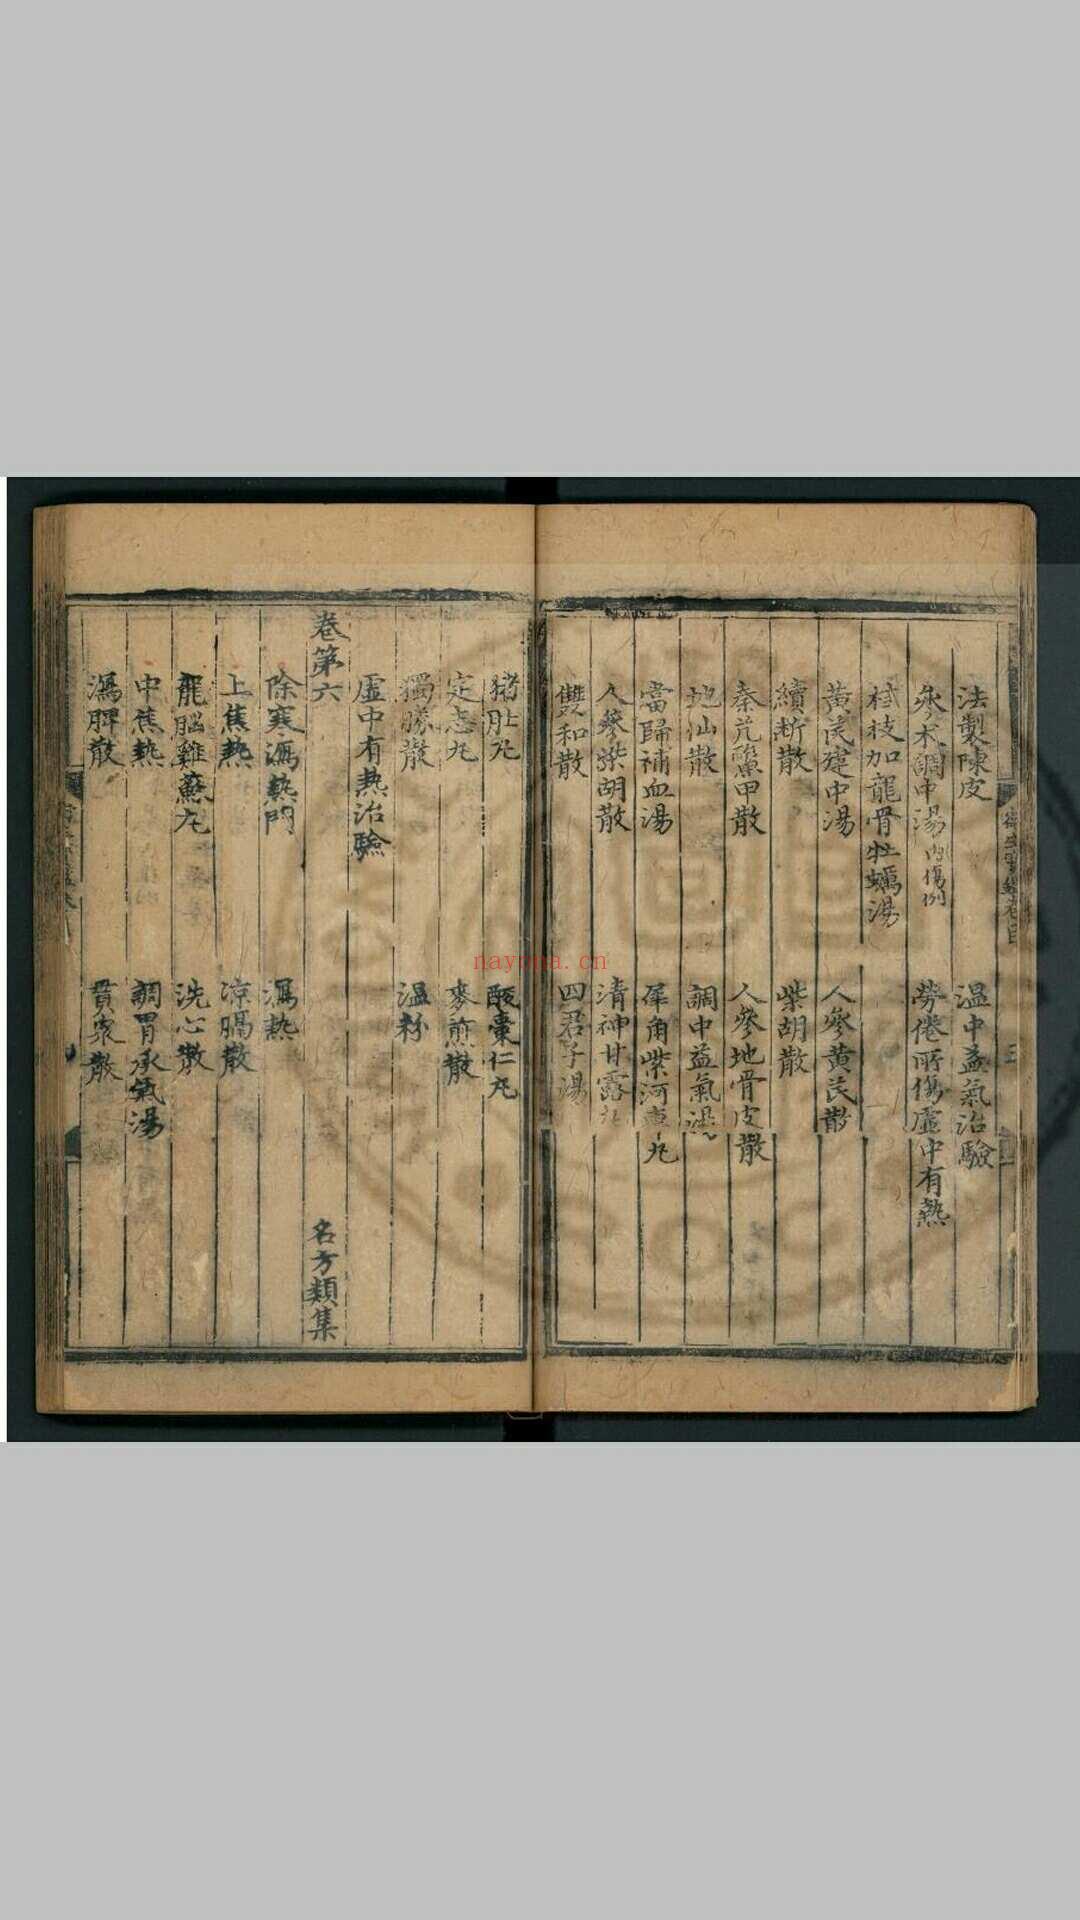 法製陳皮 温中益氣治驗
朮調中湯内傷例 勞倦所傷虛中有熱
桂枝加龍骨牡蠣湯
黄芪建中湯 人參黄芪散
續斷散 柴胡散
秦艽鱉甲散 人參地骨皮散
地仙散 調中益氣湯
當歸補血湯 犀角紫河車丸
人參柴胡散 清神甘露丸
雙和散 四君子湯
猪肚丸 酸棗仁丸
定志丸 麥煎散
獨勝散 温粉
虛中有熱治驗
卷第六 名方類集
除寒瀉熱門 瀉熱
上焦熱 凉膈散
龍腦雞蘇丸 洗心散
中焦熱 調胃承氣湯
瀉脾散 貫衆散
nayona.cn